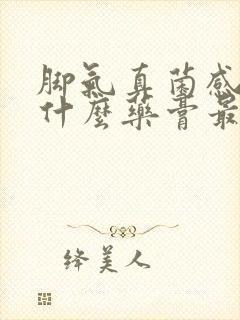 脚氣真菌感
什麼藥膏最
绛美人